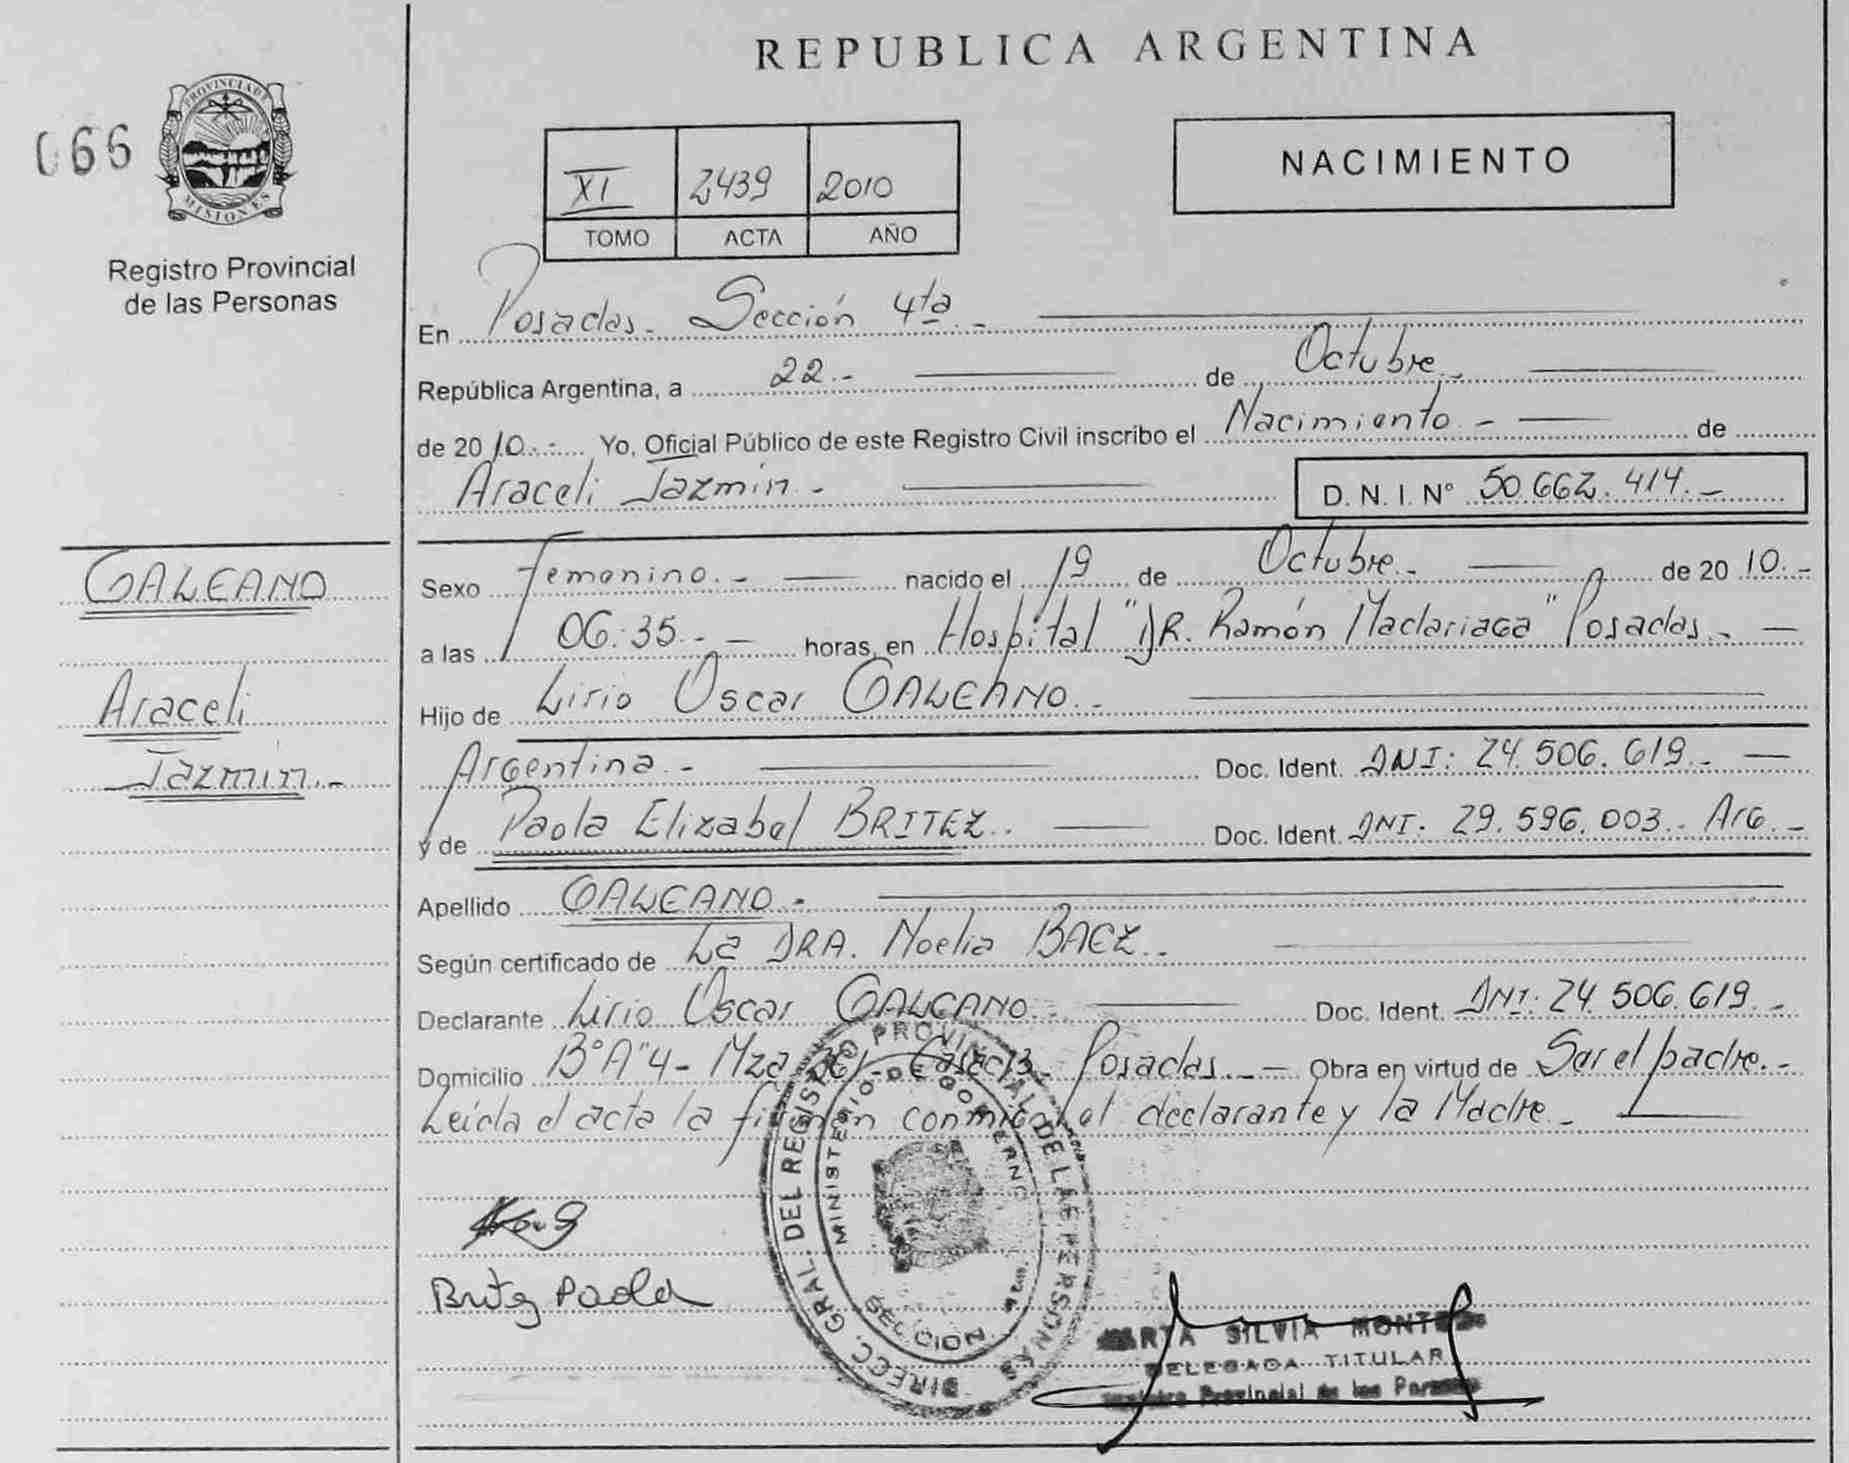 REPUBLICA ARGENTINA
066
PROVINCIA DE
MISIONES
Registro Provincial
de las Personas
XI 2439 2010
TOMO ACTA AÑO
NACIMIENTO
En Posadas.- Sección 4ta.-
República Argentina, a 22.- de Octubre.-
de 2010.- Yo, Oficial Público de este Registro Civil inscribo el Nacimiento.- de
Araceli Jazmin.- D. N. I. Nº 50.662.414.-
GALEANO
Araceli
Jazmin.-
Sexo Femenino.- nacido el 19 de Octubre.- de 2010.-
a las 06:35.- horas, en Hospital "DR. Ramón Madariaga" Posadas.-
Hijo de Lirio Oscar GALEANO.-
Argentina.- Doc. Ident. DNI: 24.506.619.-
y de Paola Elizabel BRITEZ.. Doc. Ident. DNI: 29.596.003.- Arg.-
Apellido GALEANO.-
Según certificado de La DRA. Noelia BAEZ..-
Declarante Lirio Oscar GALEANO.- Doc. Ident. DNI: 24.506.619.-
Domicilio B°A"4- Mza Posadas.- Obra en virtud de Ser el padre.-
Leída el acta la firman conmigo el declarante y la Madre.-
DIRECC. GRAL. DEL REGISTRO PROVINCIAL DE LAS PERSONAS
MINISTERIO DE GOBIERNO
SECCION
Britez Paola
MARTA SILVIA MONTE
DELEGADA TITULAR
Registro Provincial de las Personas